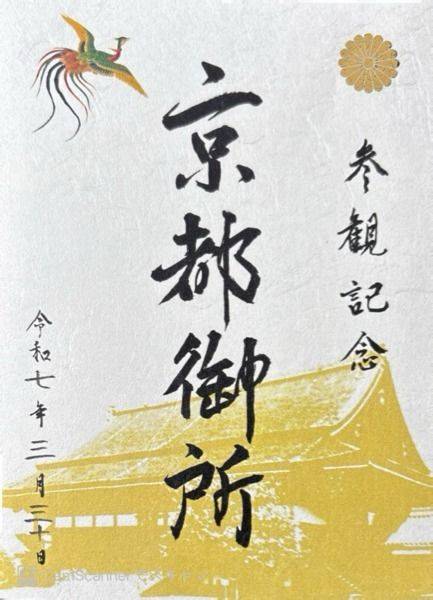 参観記念
京都御所
令和七年三月三十日